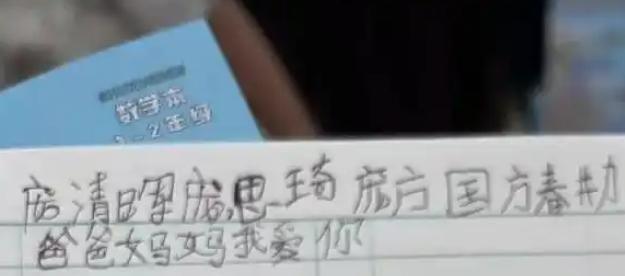 数学本
1-2年级
庞清晖庞思琦 庞方国方春
爸爸妈妈我爱你